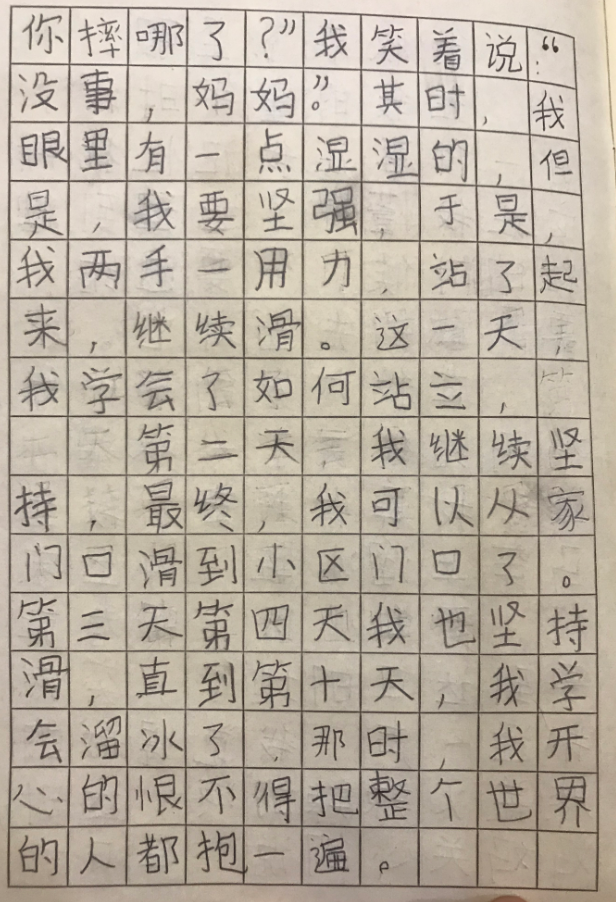 你摔哪了？”我笑着说：“
没事，妈妈”。其时，我
眼里有一点湿湿的，但
是，我要坚强，于是，
我两手一用力，站了起
来，继续滑。这一天，
我学会了如何站立，
第二天，我继续坚
持，最终，我可以从家
门口滑到小区门口了。
第三天第四天我也坚持
滑，直到第十天，我学
会溜冰了，那时，我开
心的恨不得把整个世界
的人都抱一遍。